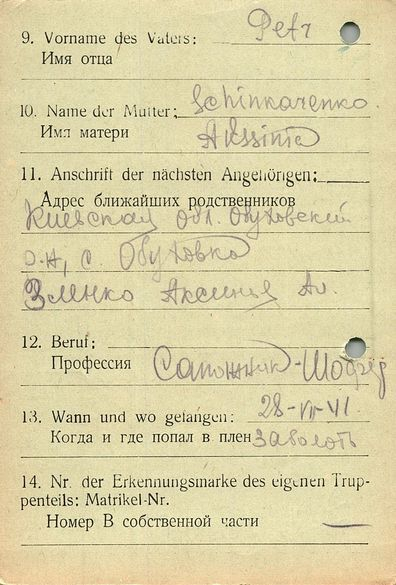 9. Vorname des Vaters: Petr
Имя отца
10. Name der Mutter: Schinkarenko
Имя матери Akssinia
11. Anschrift der nächsten Angehörigen:
Адрес ближайших родственников
Киевская обл. Обуховский
р-н, с. Обуховка
Зленко Аксинье Ал.
12. Beruf:
Профессия Сапожник-Шофёр
13. Wann und wo gefangen: 28-VII-41
Когда и где попал в плен Заволоть
14. Nr. der Erkennungsmarke des eigenen Trup-
penteils: Matrikel-Nr.
Номер В собственной части —